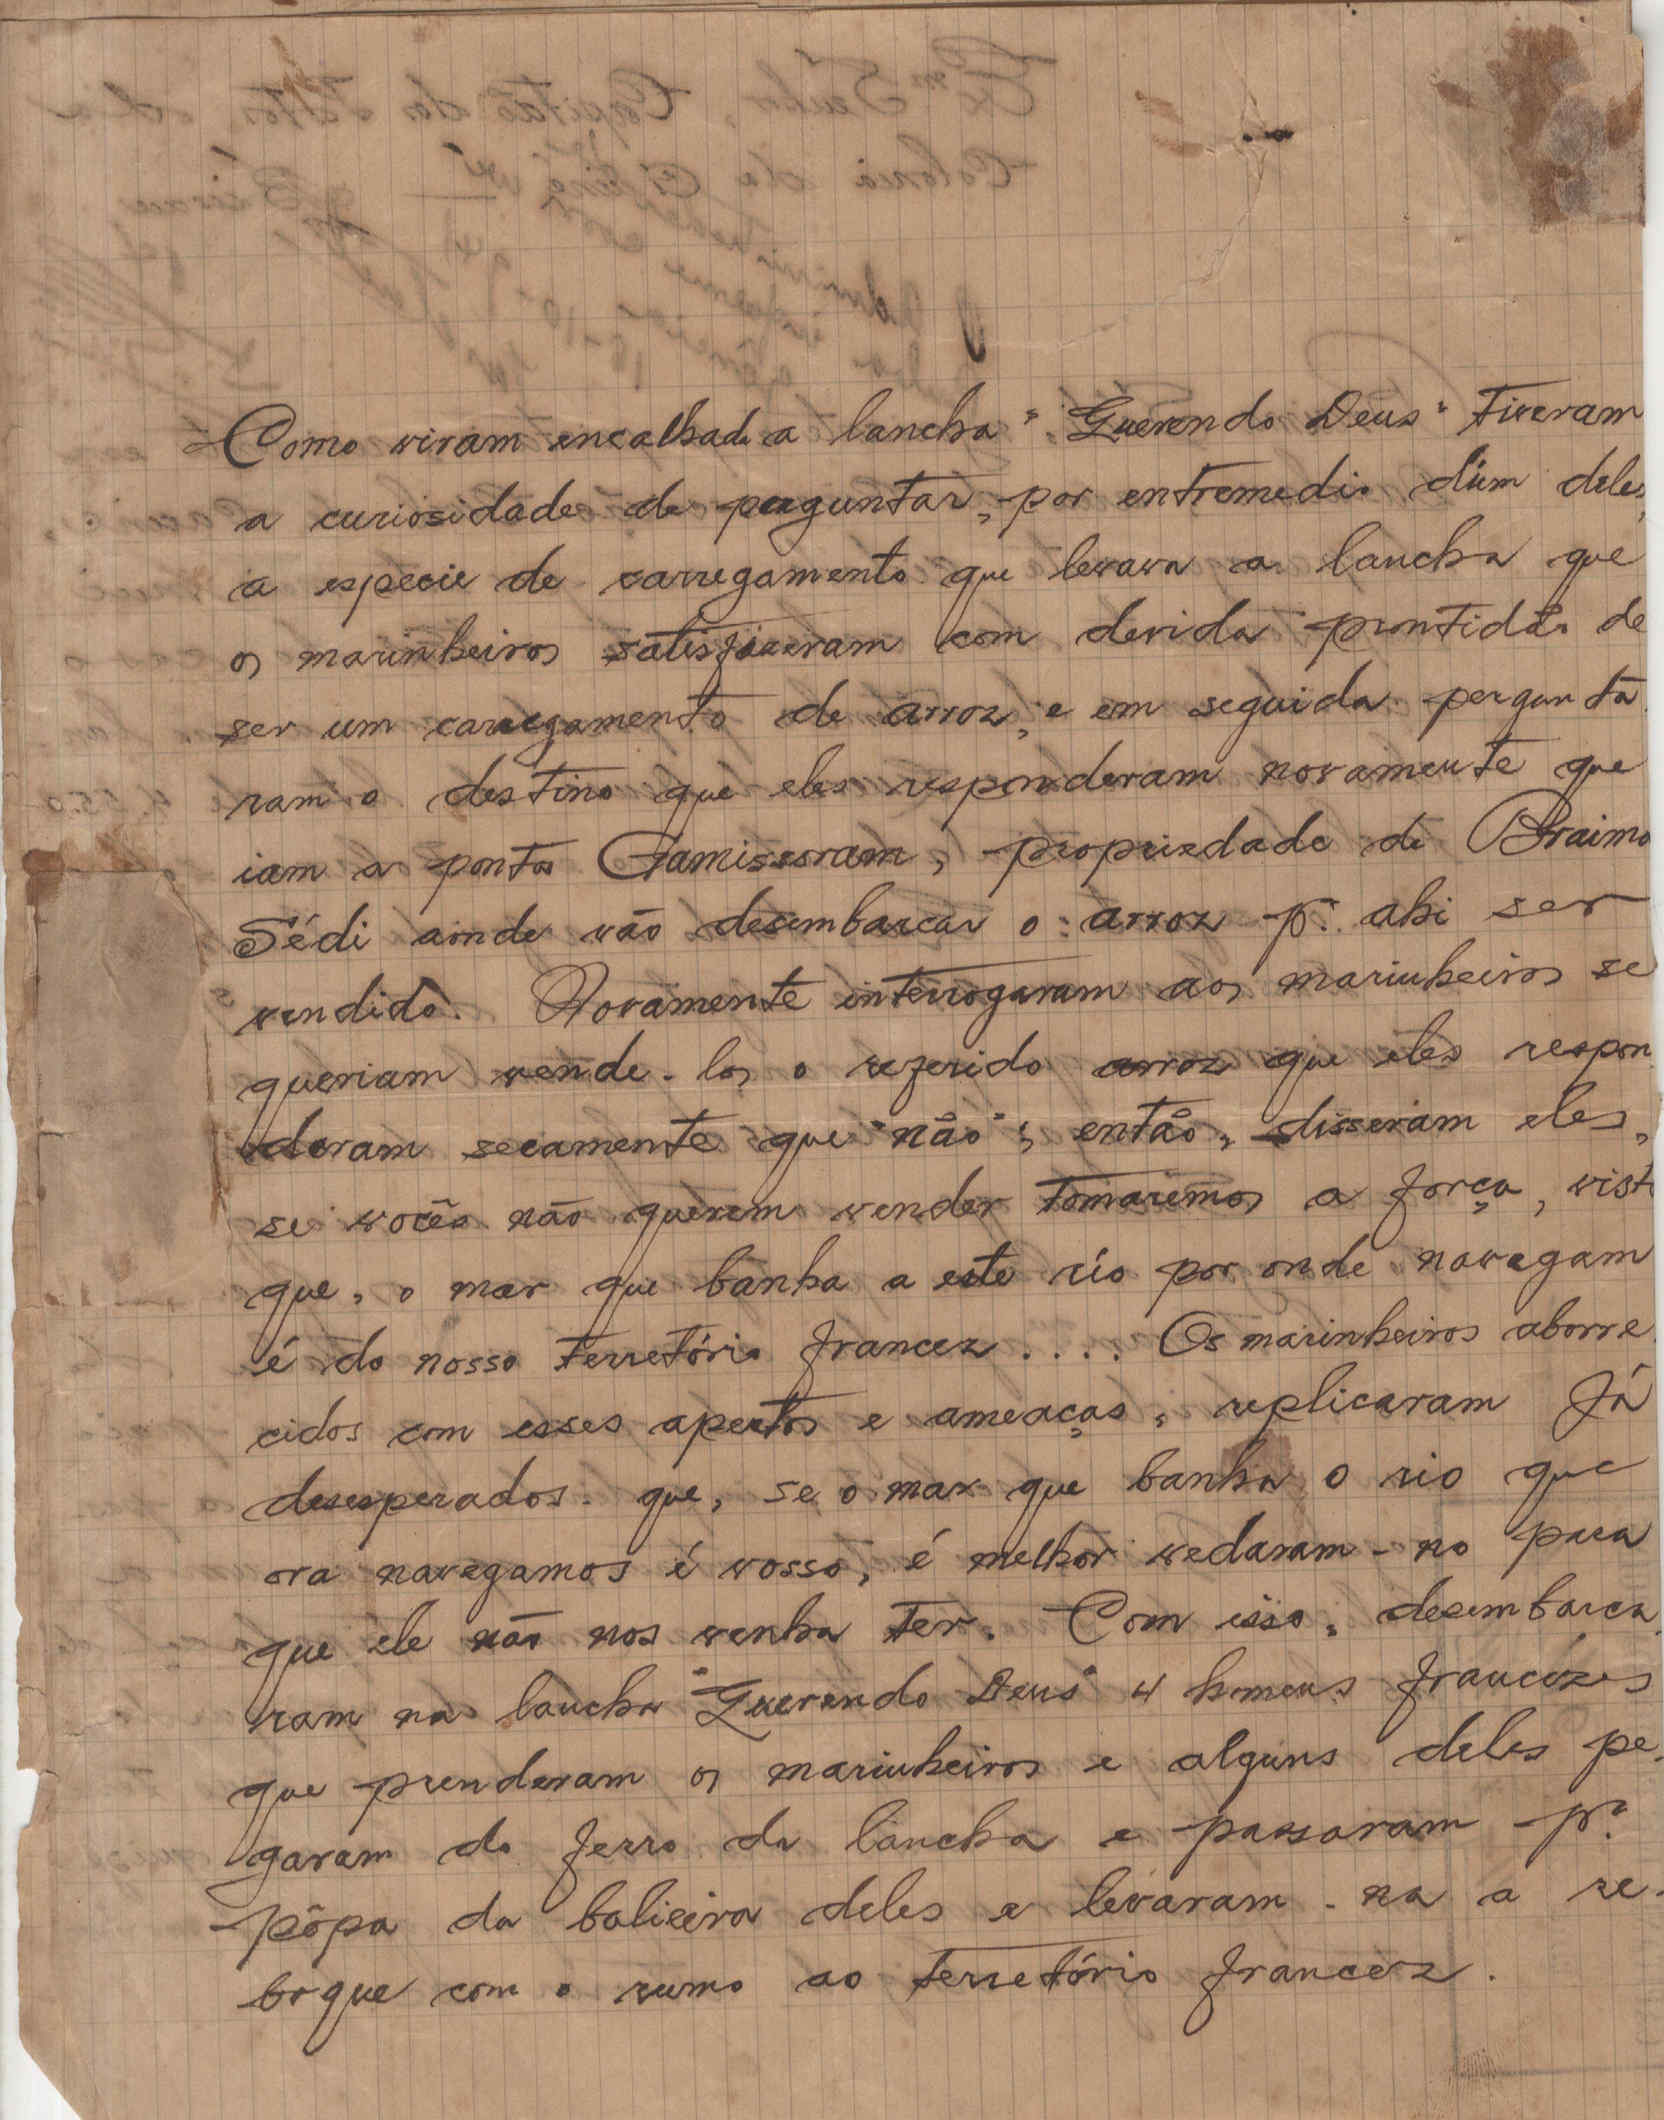 Como viram encalhada a lancha "Querendo Deus" tiveram
a curiosidade de perguntar, por entremedio dúm deles,
a especie de carregamento que levava a lancha que
os marinheiros satisfizeram com devida prontidão de
ser um carregamento de arroz, e em seguida pergunta
ram o destino que eles responderam novamente que
iam a ponta Gamisseram, propriedade de Braimo
Sédi aonde vão desembarcar o arroz pª ahi ser
vendido. Novamente interrogaram aos marinheiros se
queriam vende-los o referido arroz que eles respon
deram secamente que "não"; então, disseram eles,
se vocês não querem vender tomaremos a força, visto
que, o mar que banha a este rio por onde navegam
é do nosso terretório francez.... Os marinheiros aborre
cidos com esses apertos e ameaças, replicaram já
desesperados. que, se o mar que banha o rio que
ora navegamos é vosso, é melhor vedaram-no para
que ele não nos venha ter. Com isso, desembarca
ram na lancha "Querendo Deus" 4 homens francêzes
que prenderam os marinheiros e alguns deles pe-
garam do ferro da lancha e passaram pª
pôpa da balieira deles e levaram-na a re-
boque com o rumo ao terretório francez.